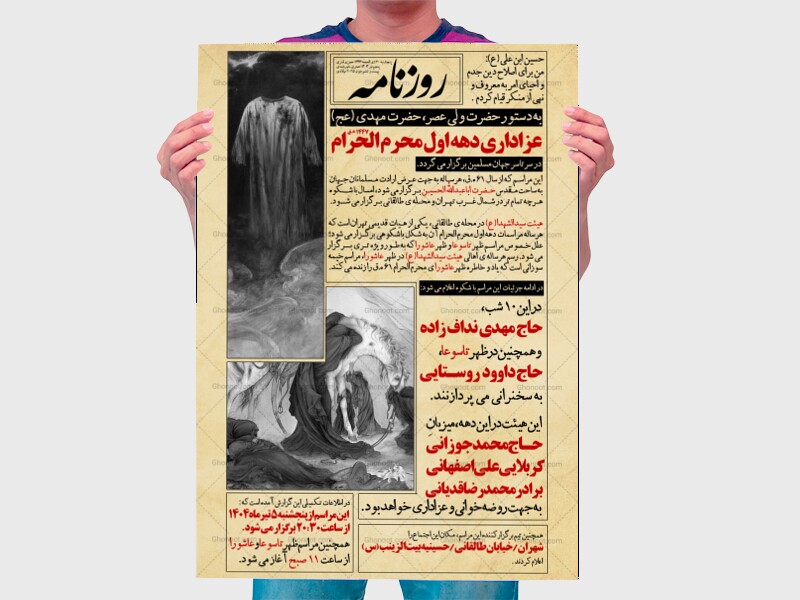 حسین ابن علی (ع):
من برای اصلاح دین جدم
و احیای امر به معروف و
نهی از منکر قیام کردم.
روزنامه
به دستور حضرت ولی عصر، حضرت مهدی (عج)
عزاداری دهه اول محرم الحرام ۱۴۴۷
در سرتاسر جهان مسلمین برگزار می گردد.
این مراسم که از سال ۶۱ ه.ق، هر ساله به جهت عرض ارادت مسلمانان جهان
به ساحت مقدس حضرت اباعبدالله الحسین برگزار می شود، امسال با شکوه
هرچه تمام تر در شمال غرب تهران و محله ی طالقانی برگزار می شود.
هیئت سیدالشهدا(ع) در محله ی طالقانی، یکی از هیئات قدیمی تهران است که
هر ساله مراسمات دهه اول محرم الحرام آن به شکل باشکوهی برگزار می شود؛
علل خصوص مراسم ظهر تاسوعا و ظهر عاشورا که به طور ویژه تری برگزار
می شود. رسم هر ساله ی اهالی هیئت سیدالشهدا(ع) در ظهر عاشورا، مراسم خیمه
سوزانی است که یاد و خاطره ظهر عاشورای محرم الحرام ۶۱ ه.ق را زنده می کند.
در ادامه جزئیات این مراسم با شکوه اعلام می شود:
در این ۱۰ شب،
حاج مهدی نداف زاده
و همچنین در ظهر تاسوعا،
حاج داوود روستایی
به سخنرانی می پردازند.
این هیئت در این دهه، میزبان
حاج محمد جوزانی
کربلایی علی اصفهانی
برادر محمدرضا قدیانی
به جهت روضه خوانی و عزاداری خواهد بود.
در اطلاعات تکمیلی این گزارش آمده است که:
این مراسم از پنجشنبه ۵ تیر ماه ۱۴۰۴
از ساعت ۲۰:۳۰ برگزار می شود.
همچنین مراسم ظهر تاسوعا و عاشورا
از ساعت ۱۱ صبح آغاز می شود.
همچنین تیم برگزار کننده این مراسم، مکان این اجتماع را
شهران / خیابان طالقانی / حسینیه بیت الزینب (س)
اعلام کردند.
Ghonoot.com